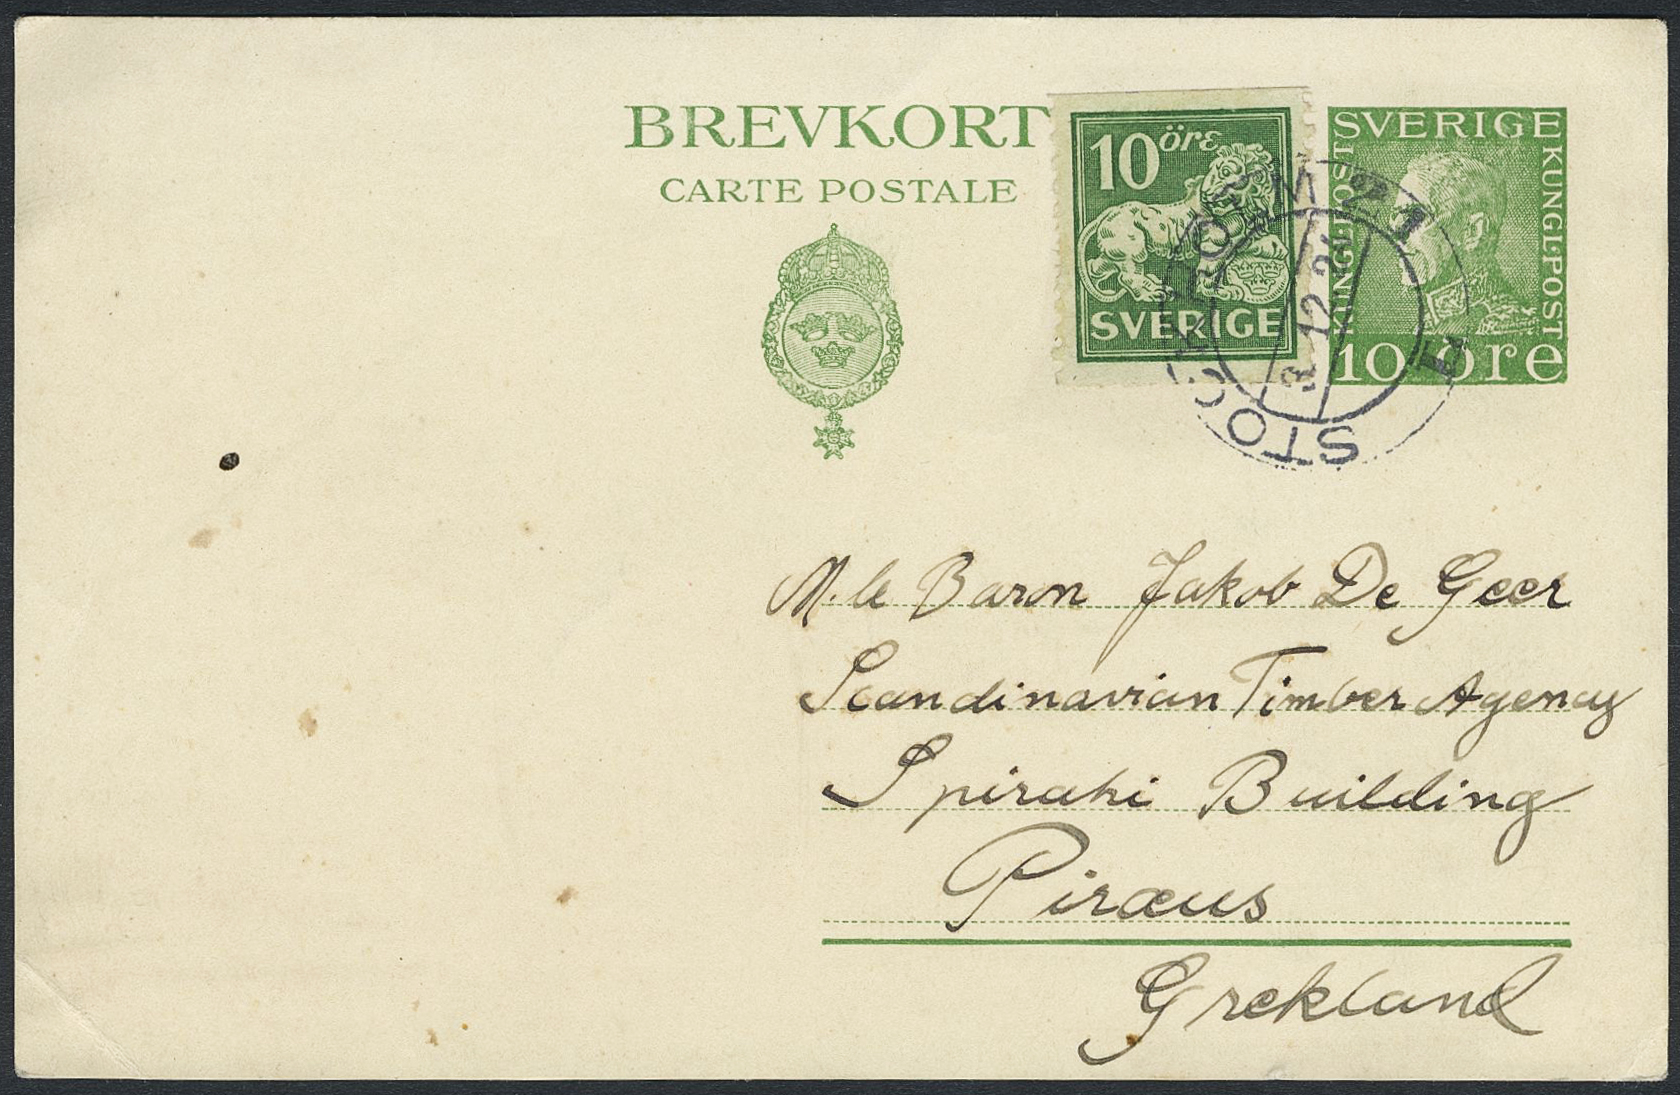 BREVKORT
CARTE POSTALE
10 öre
SVERIGE
SVERIGE
KUNGL·POST
KUNGL·POST
10 öre
STOCKHOLM 21
3.12.24
M. le Baron Jakob De Geer
Scandinavian Timber Agency
Spiraki Building
Piræus
Grekland